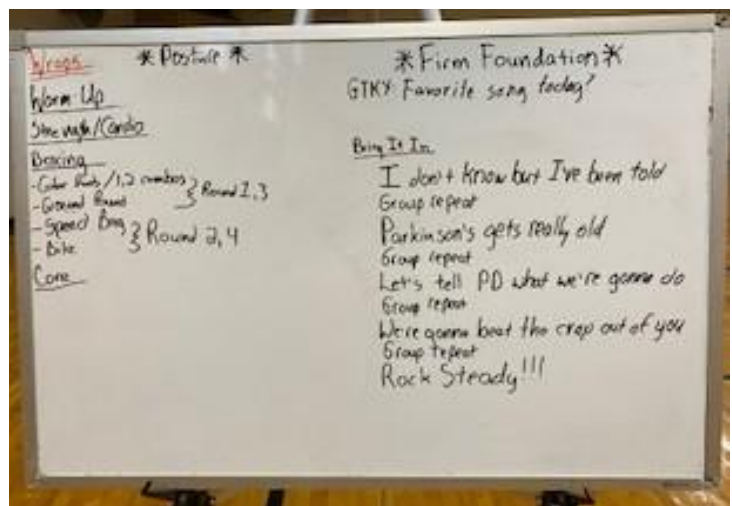 Wraps
* Posture *
Warm Up
Strength/Cardo
Boxing
- Color /1,2 combos } Round 1,3
- Ground Round
- Speed Bag } Round 2,4
- Bike
Core
* Firm Foundation *
GTKY: Favorite song today?
Bring It In
I don't know but I've been told
Group repeat
Parkinson's gets really old
Group repeat
Let's tell PD what we're gonna do
Group repeat
We're gonna beat the crap out of you
Group repeat
Rock Steady!!!